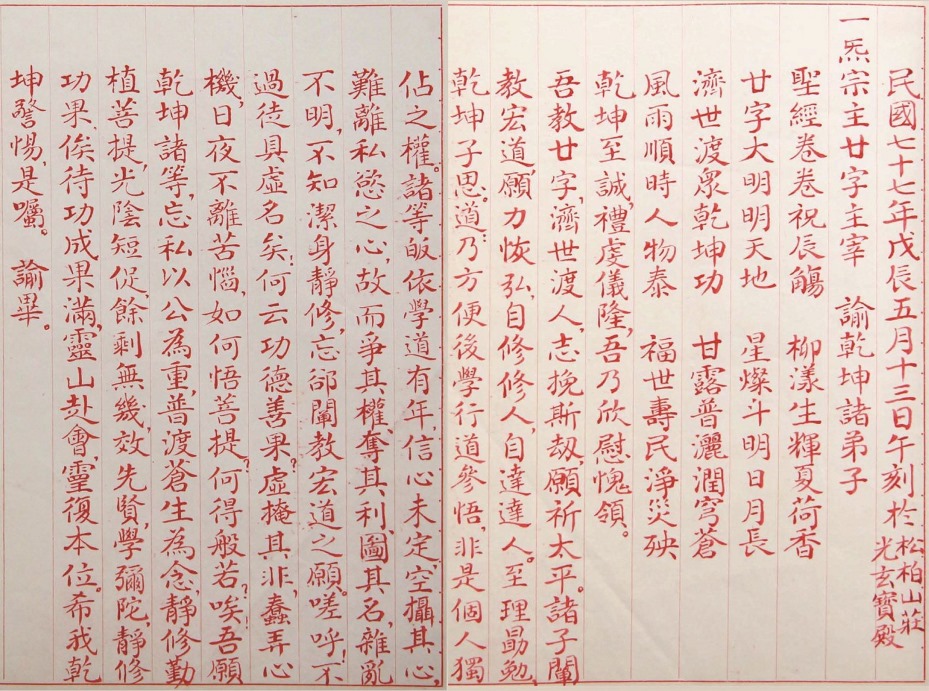 民國七十七年戊辰五月十三日午刻於松柏山莊
光玄寶殿
一炁宗主廿字主宰　諭乾坤諸弟子
聖經卷卷祝辰觴　柳漾生輝夏荷香
廿字大明明天地　星燦斗明日月長
濟世渡眾乾坤功　甘露普灑潤穹蒼
風雨順時人物泰　福世壽民淨災殃
乾坤至誠，禮虔儀隆，吾乃欣慰愧領。
吾教廿字，濟世渡人，志挽斯劫，願祈太平。諸子闡
教宏道，願力恢弘，自修修人，自達達人。至理勗勉，
乾坤子思。道：乃方便後學行道參悟，非是個人獨
佔之權。諸等皈依學道有年，信心未定，空攝其心，
難離私慾之心，故而爭其權，奪其利，圖其名，雜亂
不明，不知潔身靜修，忘卻闡教宏道之願。嗟呼！不
過徒具虛名矣！何云功德善果？虛掩其非，蠢弄心
機，日夜不離苦惱，如何悟菩提？何得般若？唉！吾願
乾坤諸等，忘私以公為重，普渡蒼生為念，靜修勤
植菩提，光陰短促，餘剩無幾，效先賢，學彌陀，靜修
功果，俟待功成果滿，靈山赴會，靈復本位。希我乾
坤警惕，是囑。　諭畢。